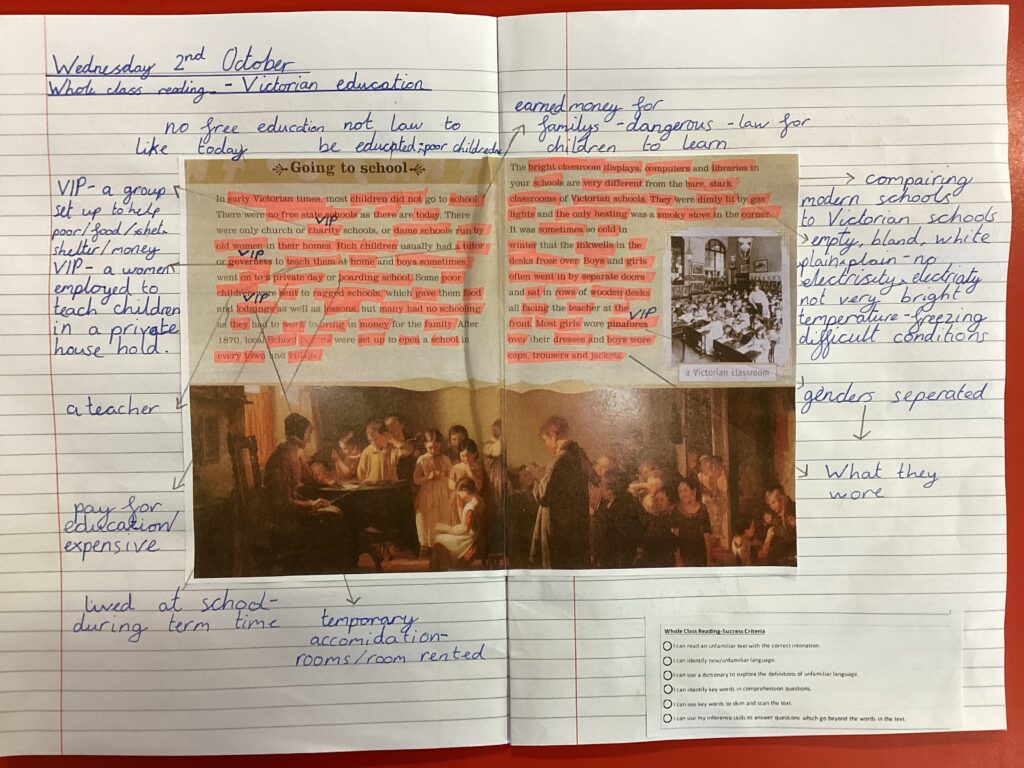 Wednesday 2nd October
Whole class reading - Victorian education
no free education not law to
like today be educated; poor children
earned money for
familys - dangerous - law for
children to learn
VIP - a group
set up to help
poor/food/
shelter/money
VIP - a women
employed to
teach children
in a private
house hold.
a teacher
pay for
education/
expensive
lived at school-
during term time
temporary
accomidation-
rooms/room rented
Going to school
In early Victorian times, most children did not go to school.
There were no free state schools as there are today. There
VIP
were only church or charity schools, or dame schools run by
old women in their homes. Rich children usually had a tutor
VIP
or governess to teach them at home and boys sometimes
went on to a private day or boarding school. Some poor
children were sent to ragged schools, which gave them food
VIP
and lodgings as well as lessons, but many had no schooling
as they had to work to bring in money for the family. After
1870, local School Boards were set up to open a school in
every town and village.
The bright classroom displays, computers and libraries in
your schools are very different from the bare, stark
classrooms of Victorian schools. They were dimly lit by gas
lights and the only heating was a smoky stove in the corner.
It was sometimes so cold in
winter that the inkwells in the
desks froze over. Boys and girls
often went in by separate doors
and sat in rows of wooden desks
all facing the teacher at the
VIP
front. Most girls wore pinafores
over their dresses and boys wore
caps, trousers and jackets.
a Victorian classroom
compairing
modern schools
to Victorian schools
empty, bland, white
plain - plain - no
electrisity electriaty
not very bright
temperature - freezing
difficult conditions
genders seperated
What they
wore
Whole Class Reading-Success Criteria
I can read an unfamiliar text with the correct intonation.
I can identify new/unfamiliar language.
I can use a dictionary to explore the definitions of unfamiliar language.
I can identify key words in comprehension questions.
I can use key words to skim and scan the text.
I can use my inference skills to answer questions which go beyond the words in the text.